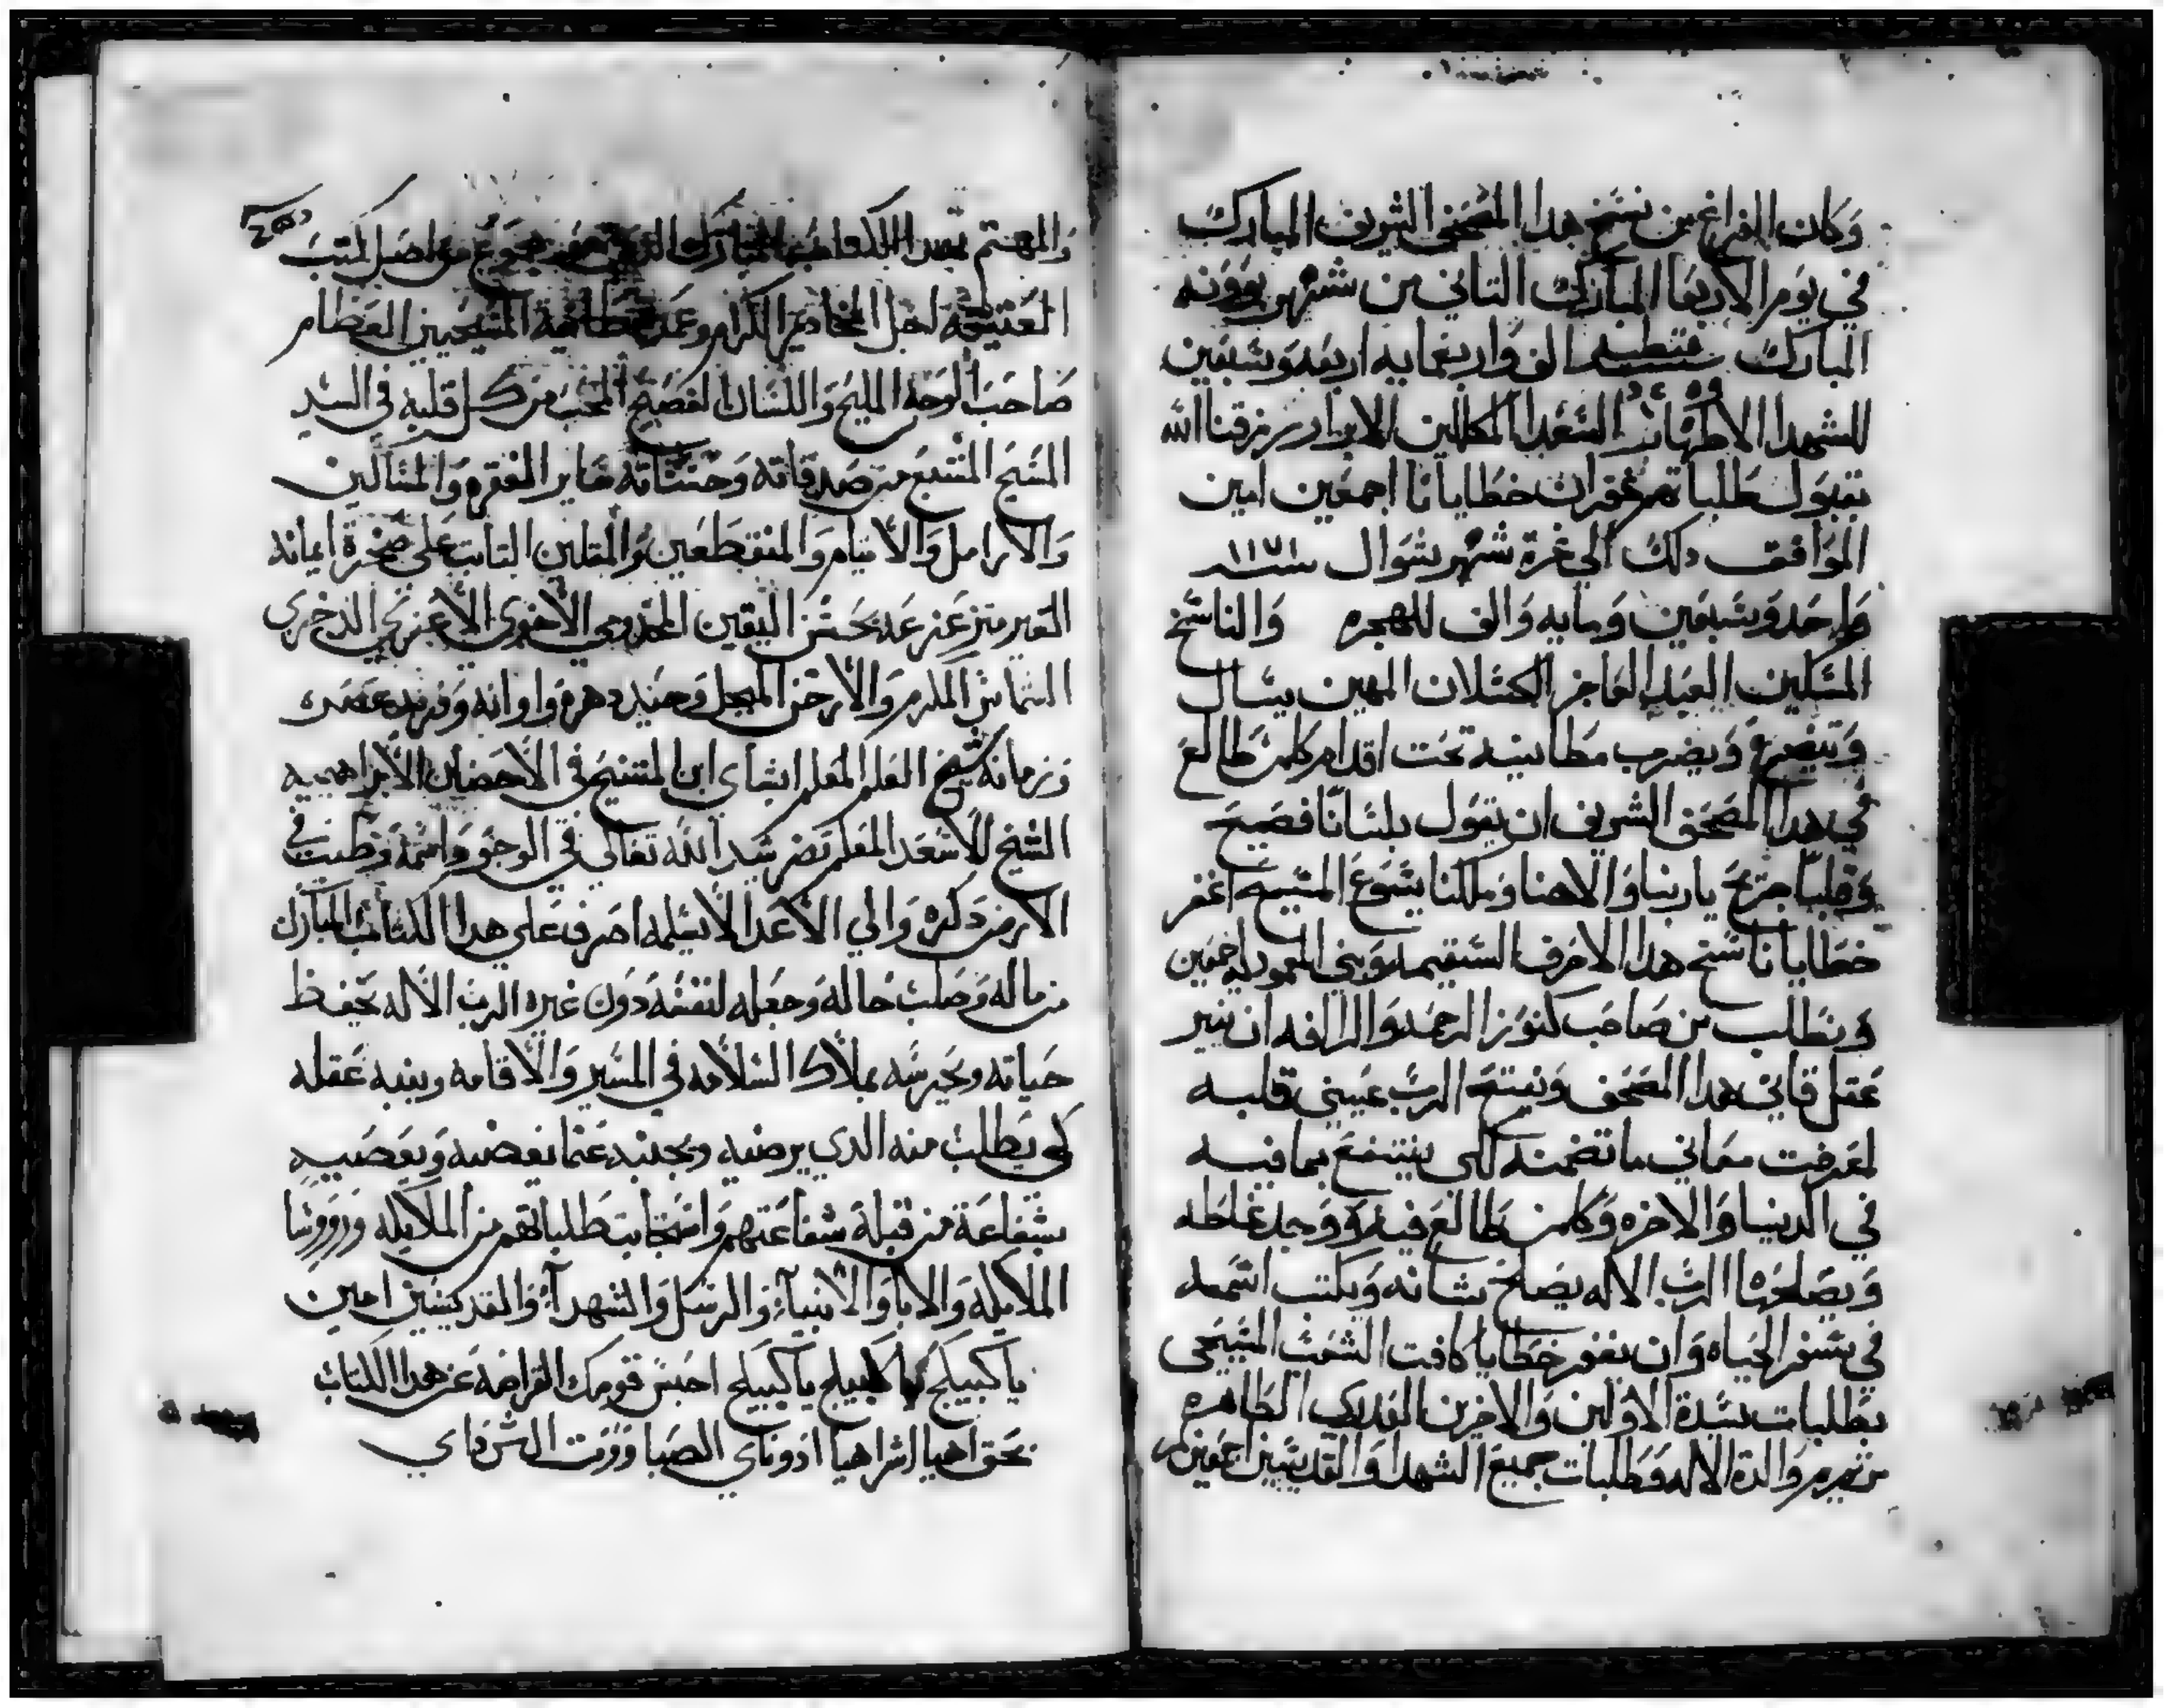 وكان الفراغ من نسخ هدا المصحف الشريف المبارك
في يوم الاربعا المبارك التاني من شهر بوونه
المبارك الف واربعمايه اربعه وسبعين
للشهدا الاطهار السعدا المكللين الابرار رزقنا الله
بقبول طلباتهم غفران خطايانا اجمعين امين
الموافق دلك الي غرة شهر شوال سنه ١١٧١
واحد وسبعين ومايه والف للهجره والناسخ
المسكين العبد العاجز الكسلان المهين يسال
ويتضرع ويضرب مطانيه تحت اقدام كلمن طالع
في هدا المصحف الشريف ان يقول بلسانا فصيح
وقلبا جريح يا ربنا والاهنا وملكنا يسوع المسيح اغفر
خطايا ناسخ هدا الاحرف السقيمه وبني المعموديه اجمعين
ونطلب من صاحب كنوز الرحمه والرافه ان ينير
عقل قاني هدا المصحف ويفتح الرب عيني قلبه
لمعرفت معاني ما تضمنه لكي ينتفع بما فيه
في الدنيا والاخره وكلمن طالع فيه ووجد غلطه
ويصلحها الرب الاله يصلح شانه ويكتب اسمه
في سفر الحياه وان يغفر خطايا كافت الشعب المسيحي
بطلبات سيدة الاولين والاخرين الطاهره
مرتمريم والدة الاله وطلبات جميع الشهدا والقديسين اجمعين
والمهتم بهدا الكتاب المبارك اصل كتب
العتيقه اجل المخاديم الكرام وعمدة طايفة المسيحيين العظام
صاحب الوجه المليح واللسان الفصيح المحب من كل قلبه في السيد
المسيح المشبع من صدقاته وحسناته الفقره والمسالين
والارامل والايتام والمنقطعين والمقلين التابت على صخرة ايمانه
الغير متزعزعه بحسن اليقين المخدومي الاخوي الاعزي الدخري
الشماس المكرم والارخن المبجل وحيد دهره واوانه وفريد عصره
وزمانه شيخ العلم المعلم ابشاي ابن المتنيح في الاحضان الابراهيميه
الشيخ الاسعد المعلم الله تعالى في الوجود اسمه وطيب في
الارض دكره والي الاعدا لا يسلمه اصرف على هدا الكتاب المبارك
من ماله وصلب حاله وجعله لنفسه دون غيره الرب الاله يحفظ
حياته ويحرسه بملاك السلامه في المسير والاقامه وينبه عقله
كي يطلب منه الدي يرضيه ويجنبه عما يغضبه
بشفاعة من قبلة شفاعتهم واستجابت طلباتهم من الملايكه وروسا
الملايكه والابا والانبياء والرسل والشهداء والقديسين امين
يا كبيكج يا كبيكج يا كبيكج احبس قومك القراضه عن هدا الكتاب
بحق اهيا اشراهيا ادوناي الصباووت الشداي